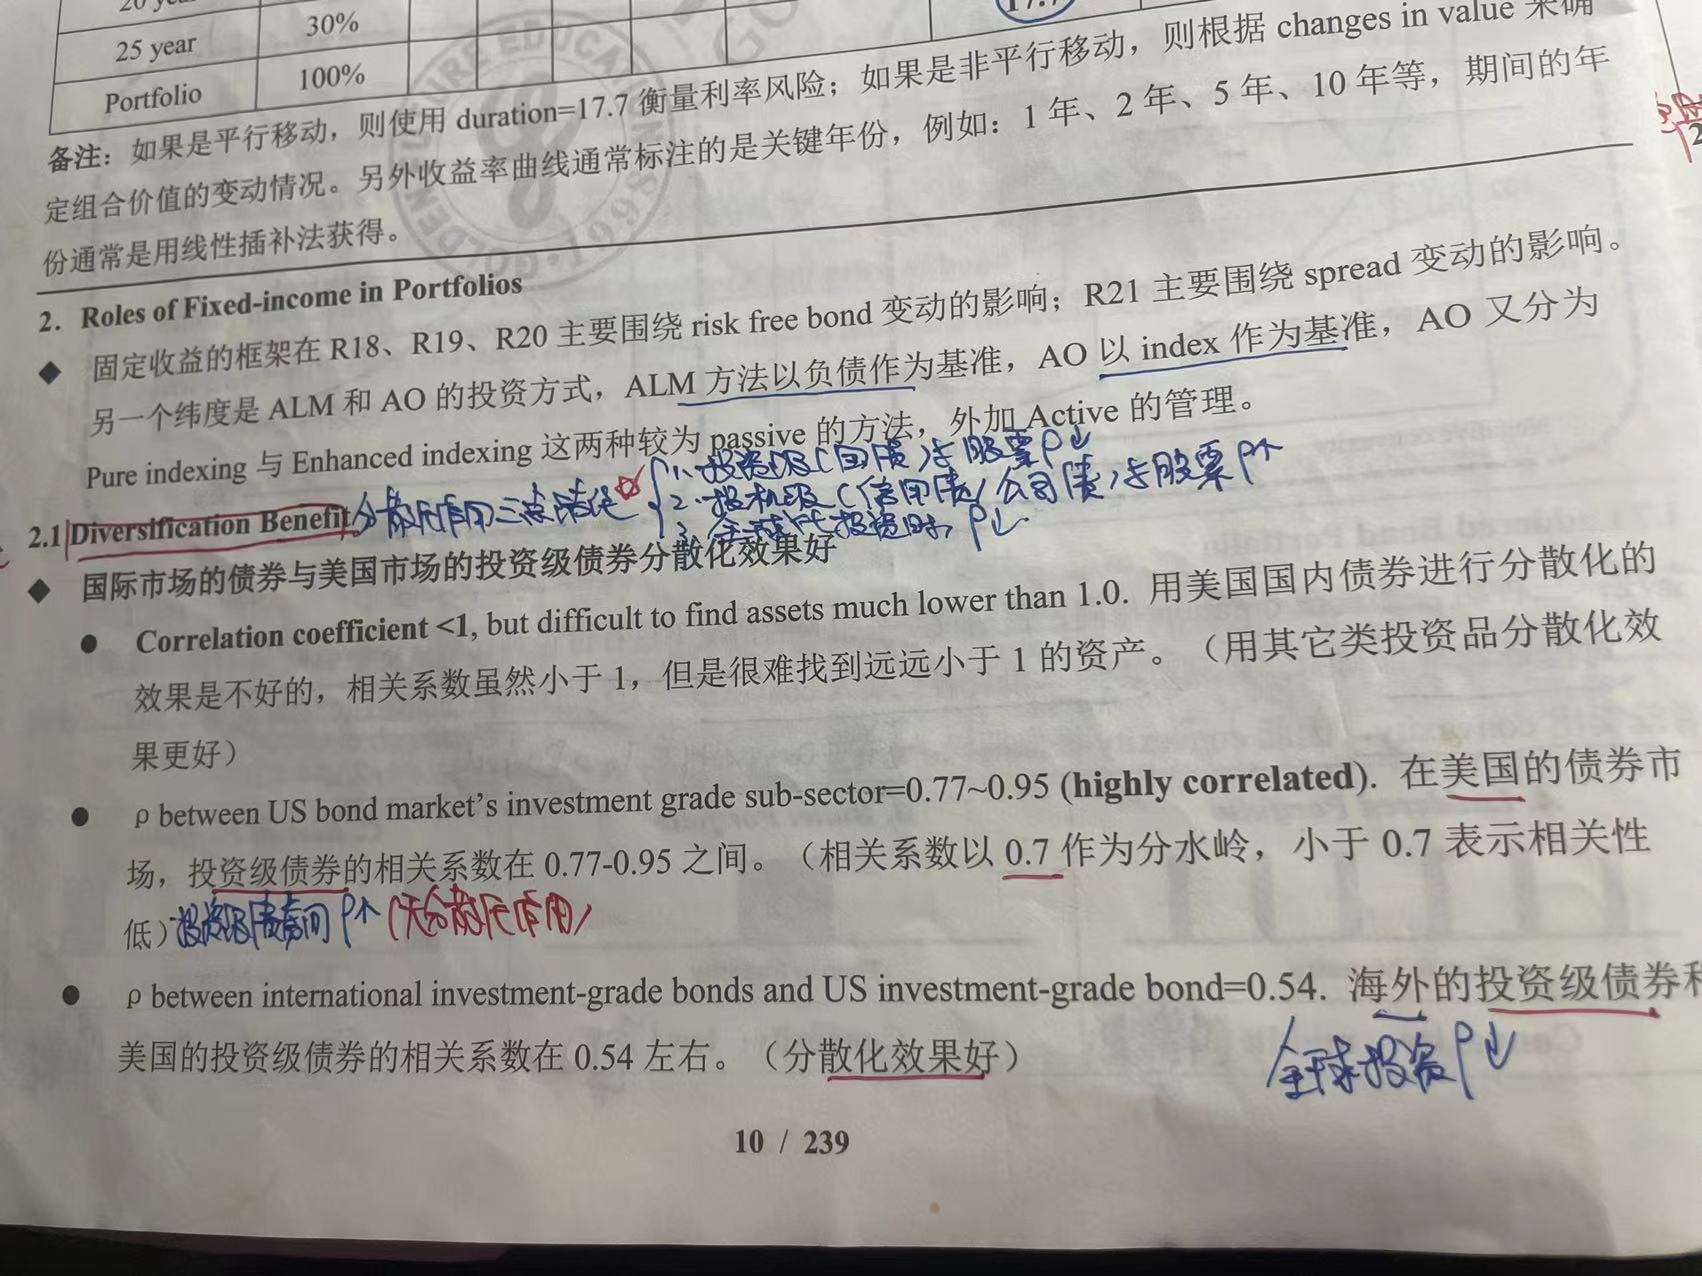 20 year
25 year 30%
Portfolio 100%
17.7
备注：如果是平行移动，则使用 duration=17.7 衡量利率风险；如果是非平行移动，则根据 changes in value 来确
定组合价值的变动情况。另外收益率曲线通常标注的是关键年份，例如：1 年、2 年、5 年、10 年等，期间的年
份通常是用线性插补法获得。
2. Roles of Fixed-income in Portfolios
◆ 固定收益的框架在 R18、R19、R20 主要围绕 risk free bond 变动的影响；R21 主要围绕 spread 变动的影响。
另一个纬度是 ALM 和 AO 的投资方式，ALM 方法以负债作为基准，AO 以 index 作为基准，AO 又分为
Pure indexing 与 Enhanced indexing 这两种较为 passive 的方法，外加 Active 的管理。
1. 投资级（国债）与股票ρ↓
2. 投机级（信用债/公司债）与股票ρ↑
3. 全球化投资时，ρ↓
2.1 Diversification Benefit 分散化作用三点结论
◆ 国际市场的债券与美国市场的投资级债券分散化效果好
● Correlation coefficient <1, but difficult to find assets much lower than 1.0. 用美国国内债券进行分散化的
效果是不好的，相关系数虽然小于 1，但是很难找到远远小于 1 的资产。（用其它类投资品分散化效
果更好）
● ρ between US bond market's investment grade sub-sector=0.77~0.95 (highly correlated). 在美国的债券市
场，投资级债券的相关系数在 0.77-0.95 之间。（相关系数以 0.7 作为分水岭，小于 0.7 表示相关性
低）投资级债券间ρ↑（无分散化作用）
● ρ between international investment-grade bonds and US investment-grade bond=0.54. 海外的投资级债券和
美国的投资级债券的相关系数在 0.54 左右。（分散化效果好）
全球投资ρ↓
10 / 239